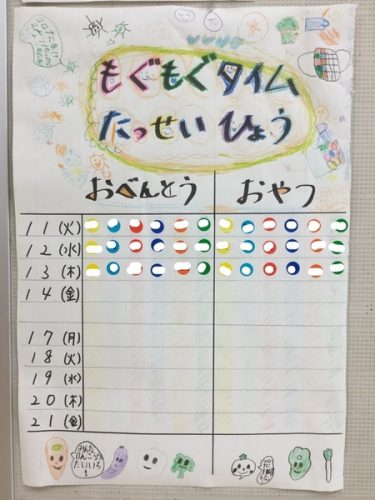 もぐもぐタイム
たっせい ひょう
おべんとう おやつ
11(火)
12(水)
13(木)
14(金)
17(月)
18(火)
19(水)
20(木)
21(金)